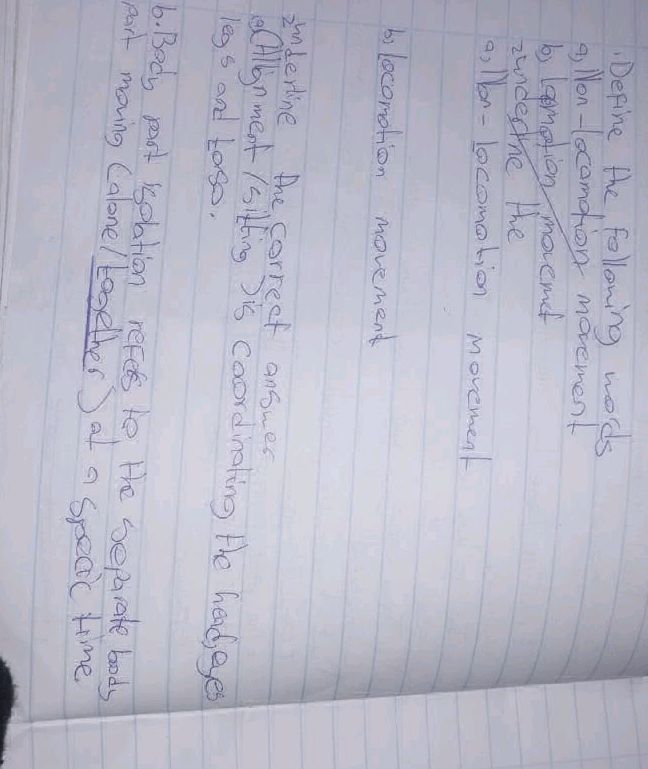 1.Define the following words
a) Non-locomotion movement
b) Locomotion movemt
2underline the
a) Non-locomotion movement
b) Locomotion movement
2underline the correct answer
a(Alignment/sitting) is coordinating the head, eyes
legs and torso.
b. Body part isolation refers to the separate body
part moving (alone/together) at a specific time.